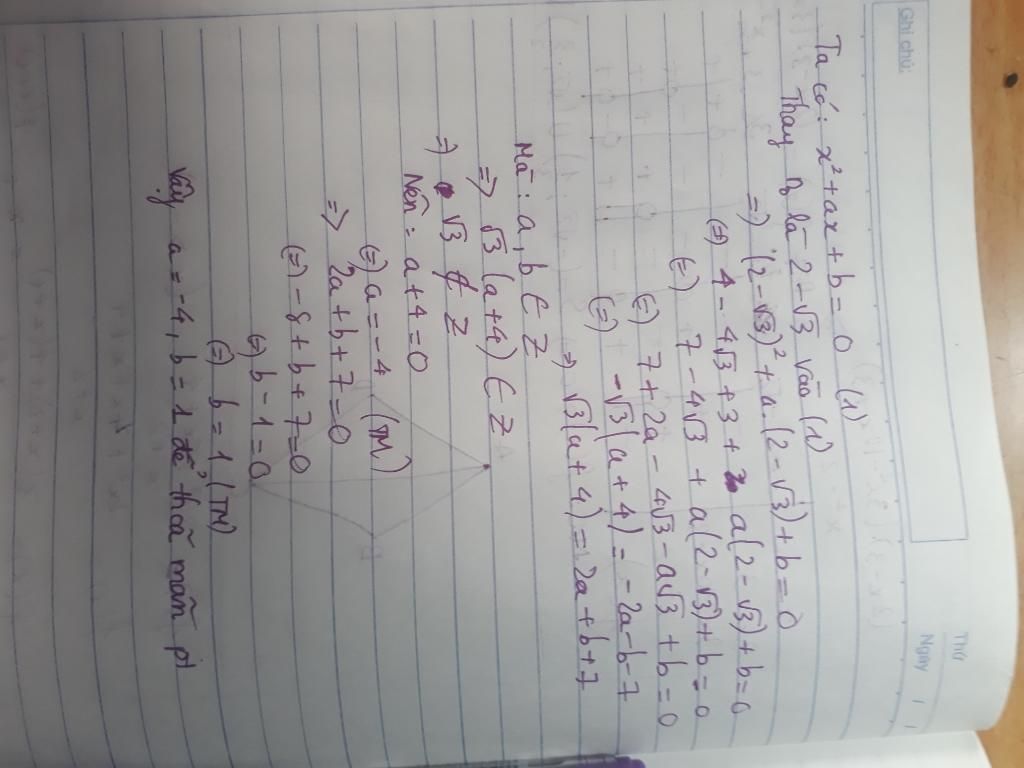 Ghi chú:
Thứ
Ngày / /
Ta có: x² + ax + b = 0 (1)
Thay n₀ là 2 - √3 vào (1)
=) (2 - √3)² + a. (2 - √3) + b = 0
(=) 4 - 4√3 + 3 + a(2 - √3) + b = 0
(=) 7 - 4√3 + a(2 - √3) + b = 0
(=) 7 + 2a - 4√3 - a√3 + b = 0
(=) -√3(a + 4) = -2a - b - 7
=) √3(a + 4) = 2a + b + 7
Mà: a, b ∈ Z
=> √3 (a + 4) ∈ Z
=) √3 ∉ Z
Nên: a + 4 = 0
(=) a = -4 (TM)
=> 2a + b + 7 = 0
(=) -8 + b + 7 = 0
(=) b - 1 = 0
(=) b = 1 (TM)
Vậy a = -4, b = 1 để thoã mãn pt